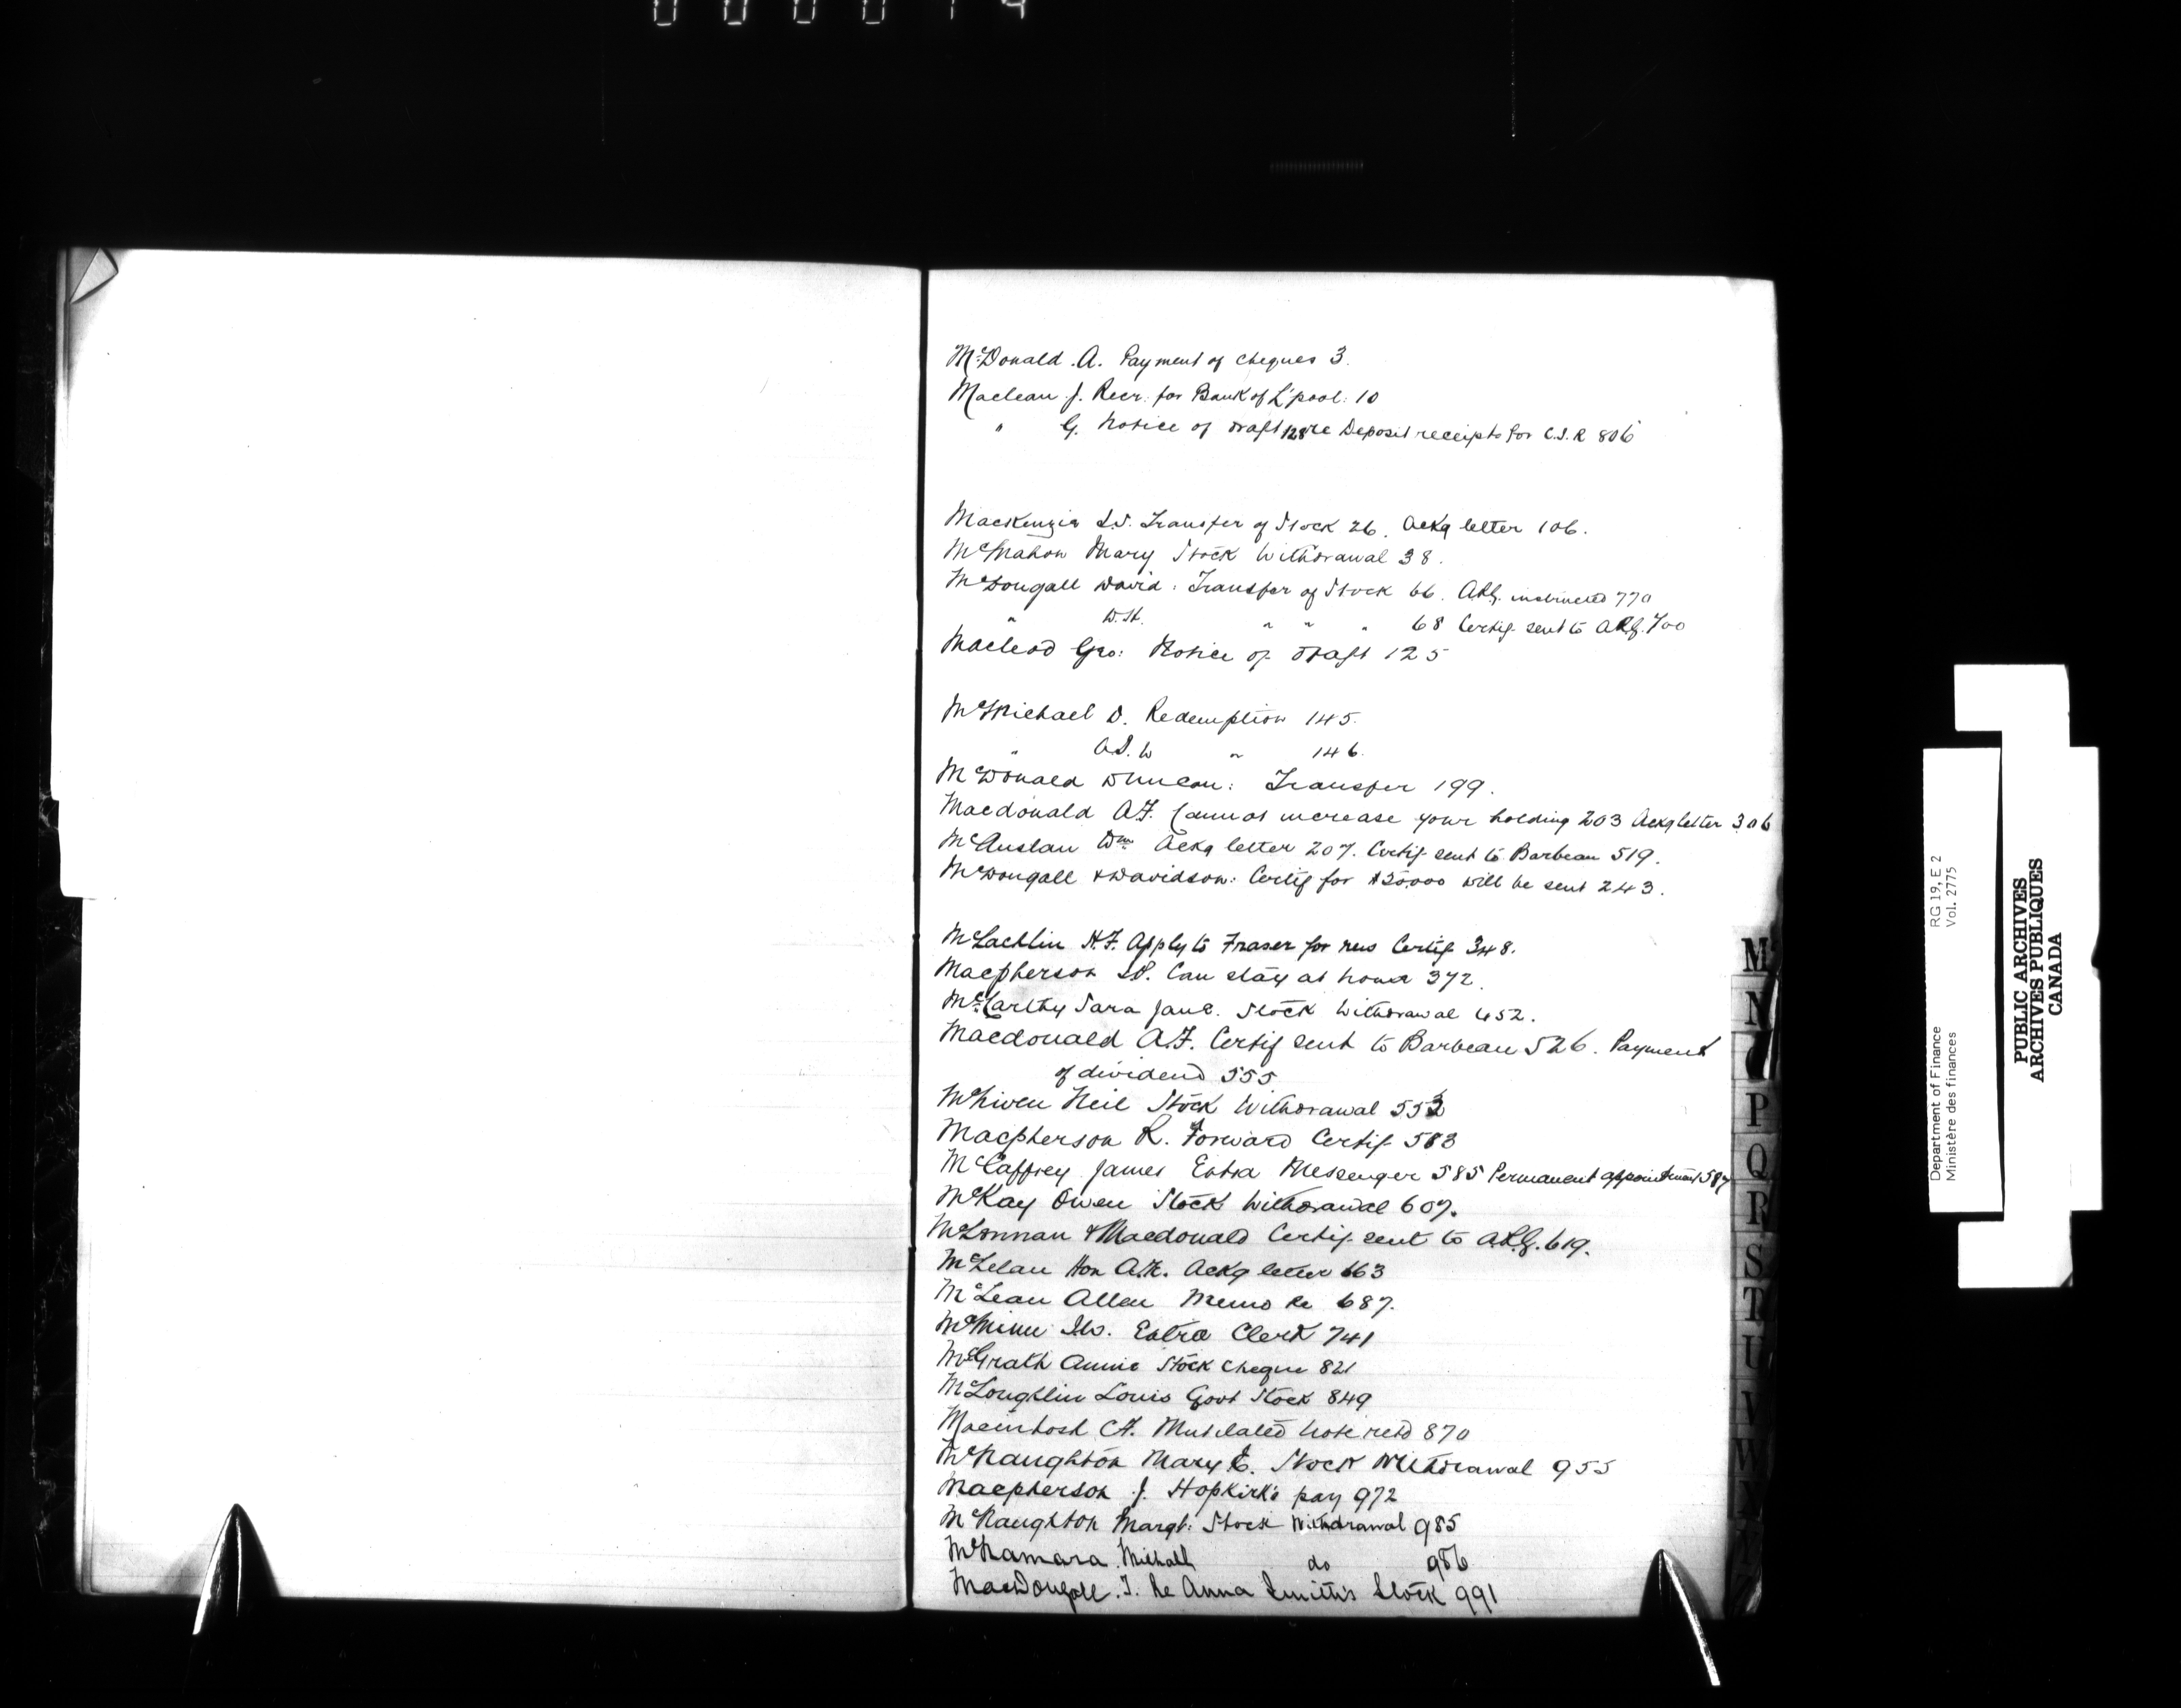 McDonald A. Payment of Cheques 3.
Maclean J. Recr. for Bank of L'pool: 10
" G. Notice of Draft 128 re Deposit receipts for C.S.R 806
Mackenzie Transfer of Stock 26. Ackg letter 106.
McMahon Mary Stock Withdrawal 38.
McDougall David: Transfer of Stock 66. instructed 770
" " " " 68 Certif sent to 700
Macleod Geo: Notice of Draft 125
McMichael D. Redemption 145.
" " 146.
McDonald Duncan: Transfer 199.
Macdonald A.F. Cannot increase your holding 203 Ackg letter 306
McAuslan Wm Ackg letter 207. Certif sent to Barbeau 519.
McDougall & Davidson: Certif for will be sent 243.
McLachlin H.F. Apply to Fraser for new Certif 348.
Macpherson Can stay at home 372.
McCarthy Sara Jane. Stock Withdrawal 452.
Macdonald A.F. Certif sent to Barbeau 526. Payment
of dividend 555
McNiven Neil Stock Withdrawal 553
Macpherson R. Forward Certif 583
McCaffrey James Extra Messenger 585 Permanent appointment 587
McKay Owen Stock Withdrawal 607.
McLennan & Macdonald Certif sent to 619.
McLelan Hon Ackg letter 663
McLean Allen Memo Re 687.
Extra Clerk 741
McGrath Annie Stock Cheque 821
McLoughlin Louis Govt Stock 849
Macintosh C.F. Mutilated note retd 870
McNaughton Mary E. Stock Withdrawal 955
Macpherson J. Hopkirk's pay 972
McNaughton Margt: Stock Withdrawal 985
McNamara do 986
MacDougall. T. Re Anna Smith's Stock 991
M
N
P
Q
R
S
T
U
V
W
Department of Finance RG 19, E 2
Ministère des finances Vol. 2775
PUBLIC ARCHIVES
ARCHIVES PUBLIQUES
CANADA